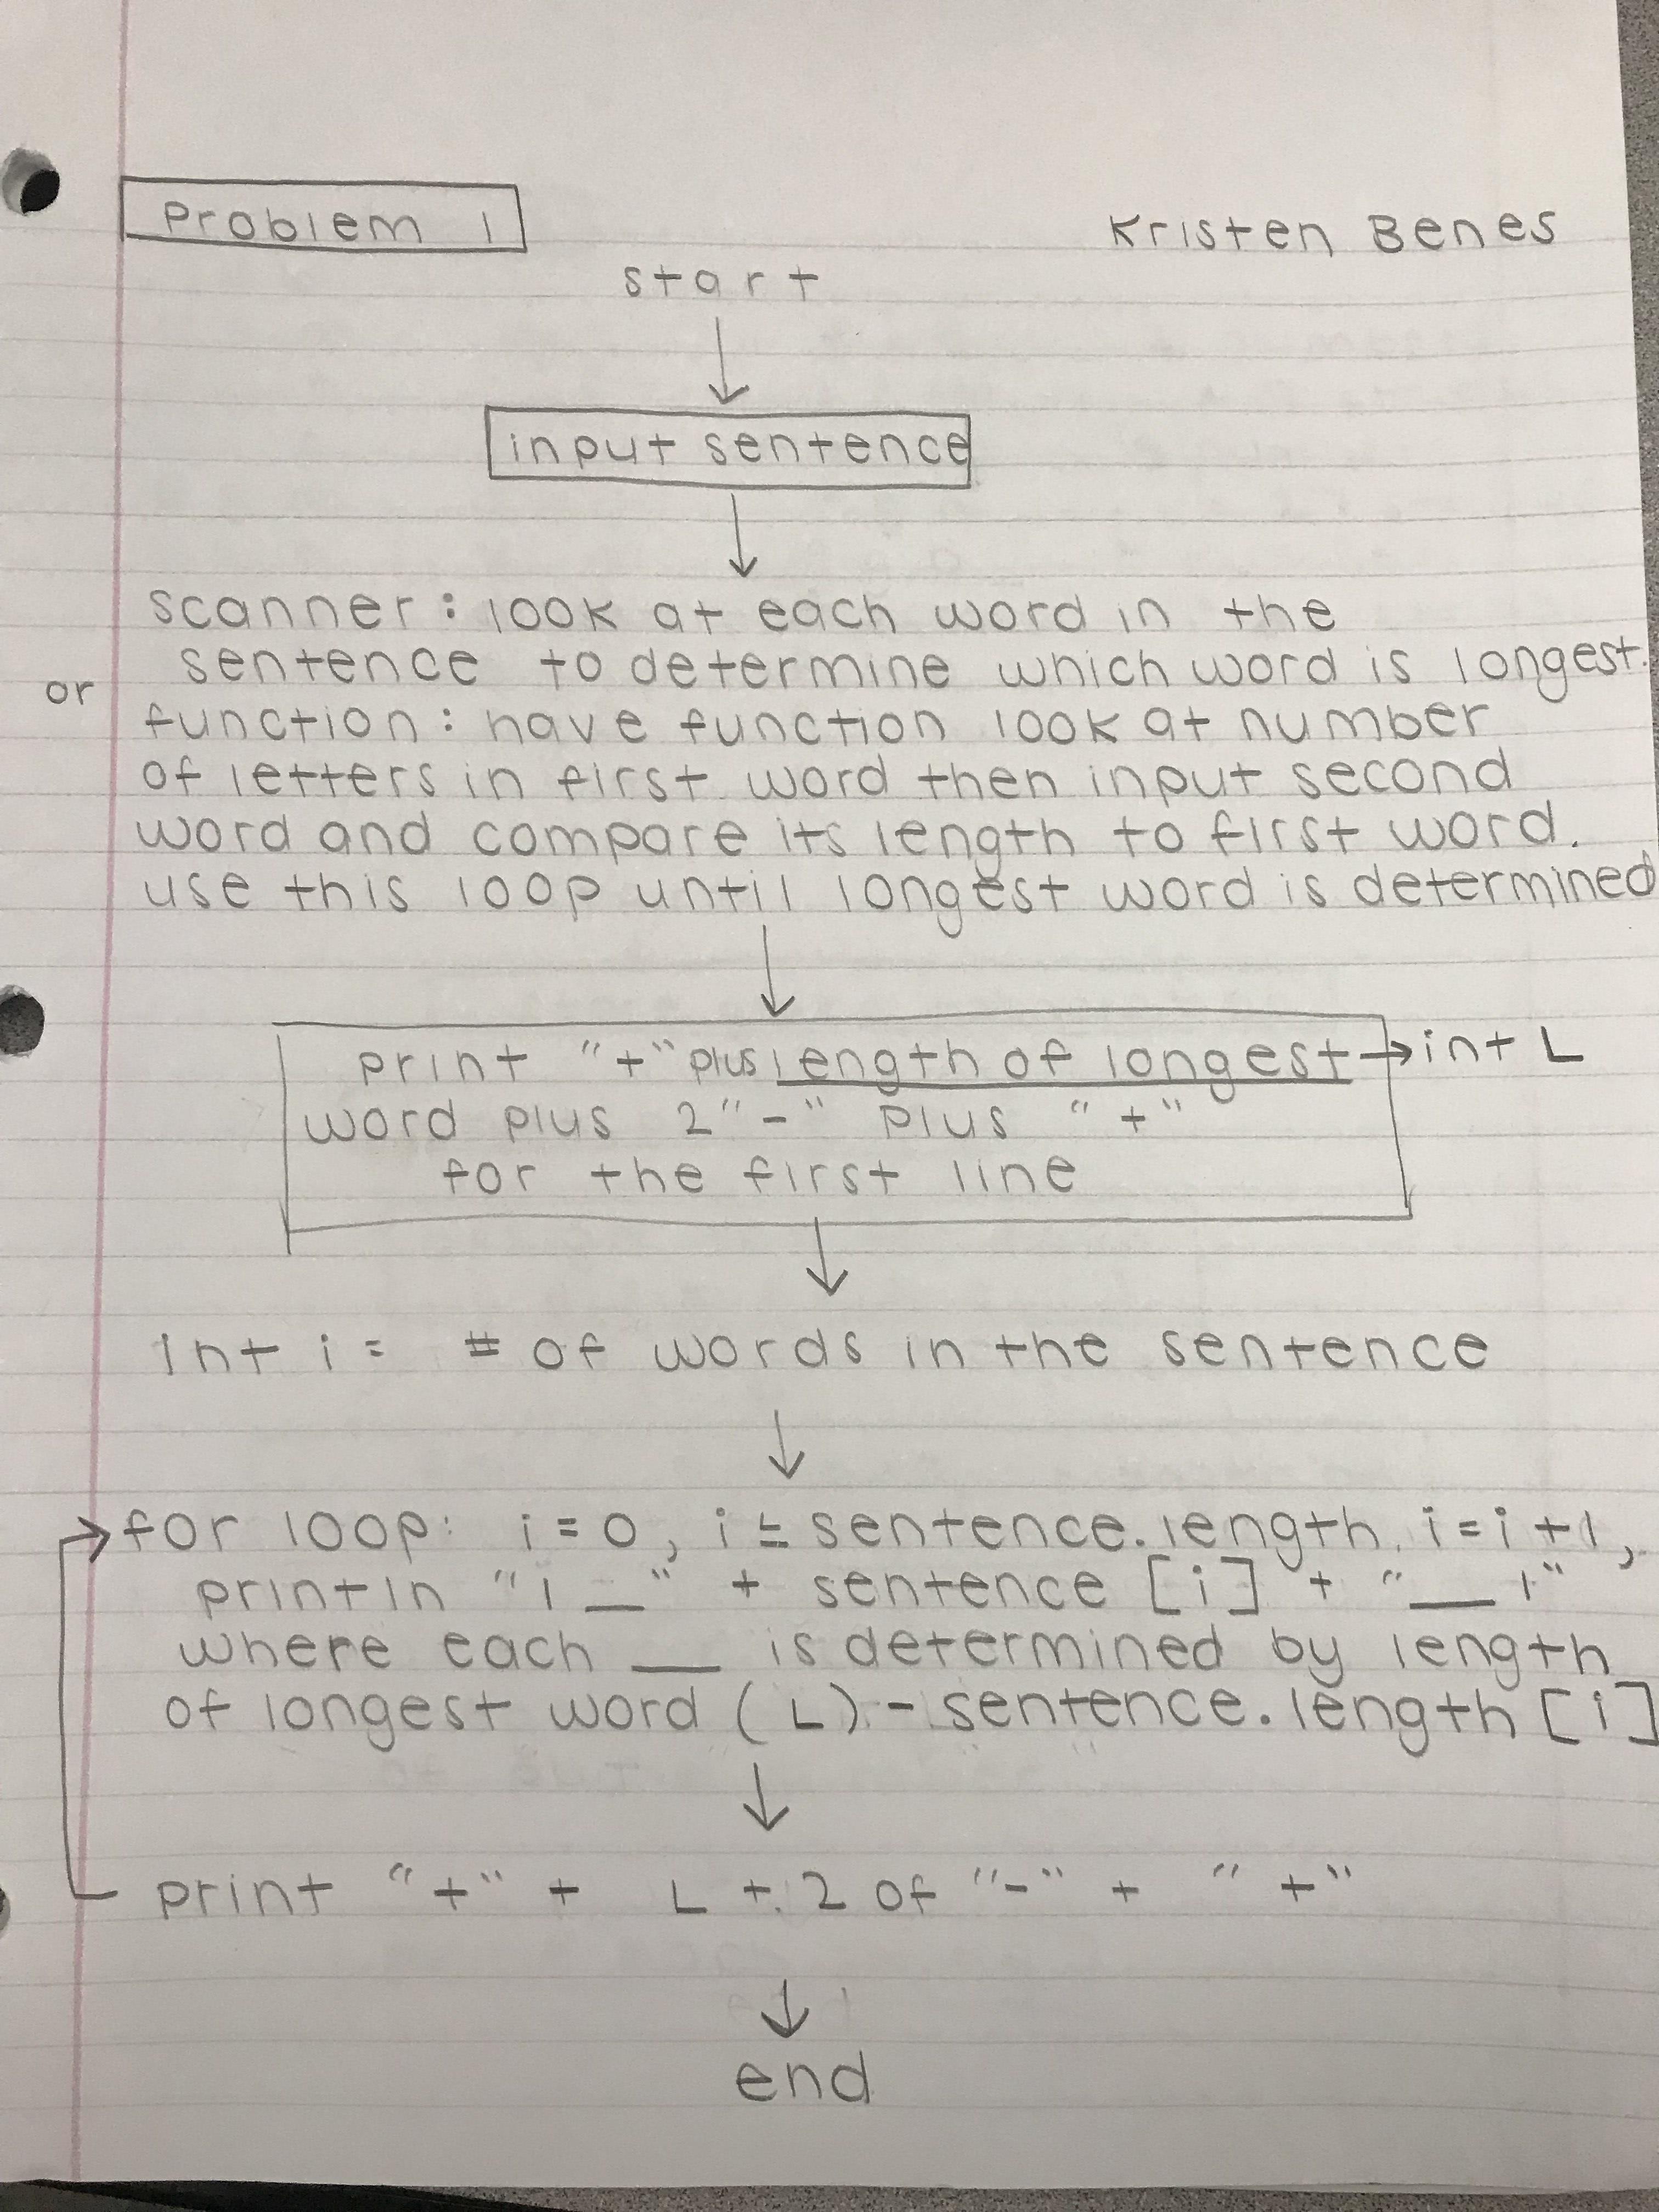 Problem 1 Kristen Benes
start
↓
input sentence
↓
scanner: look at each word in the
sentence to determine which word is longest.
or
function: have function look at number
of letters in first word then input second
word and compare its length to first word.
use this loop until longest word is determined
↓
print "+" plus length of longest → int L
word plus 2 "-" plus "+"
for the first line
↓
int i = # of words in the sentence
↓
for loop: i=0, i≤sentence.length, i=i+1,
println "| __" + sentence [i] + "__ |"
where each __ is determined by length
of longest word (L) - sentence.length [i]
↓
print "+" + L + 2 of "-" + "+"
↓
end